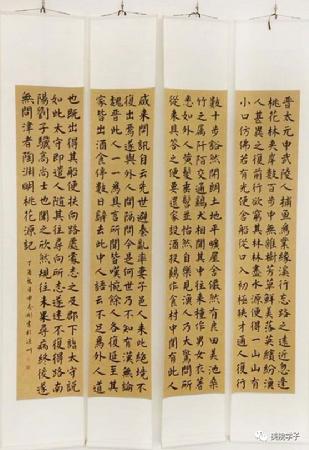 晉太元中武陵人捕魚為業緣溪行忘路之遠近忽逢
桃花林夾岸數百步中無雜樹芳草鮮美落英繽紛漁
人甚異之復前行欲窮其林林盡水源便得一山山有
小口仿佛若有光便舍船從口入初極狹才通人復行
數十步豁然開朗土地平曠屋舍儼然有良田美池桑
竹之屬阡陌交通雞犬相聞其中往來種作男女衣著
悉如外人黃髮垂髫並怡然自樂見漁人乃大驚問所
從來具答之便要還家設酒殺雞作食村中聞有此人
咸來問訊自云先世避秦亂率妻子邑人來此絕境不
復出焉遂與外人間隔問今是何世乃不知有漢無論
魏晉此人一一為具言所聞皆嘆惋餘人各復延至其
家皆出酒食停數日辭去此中人語云不足為外人道
也既出得其船便扶向路處處志之及郡下詣太守說
如此太守即遣人隨其往尋向所志遂迷不復得路南
陽劉子驥高尚士也聞之欣然規往未果尋病終後遂
無問津者陶淵明桃花源記
丁酉
学子